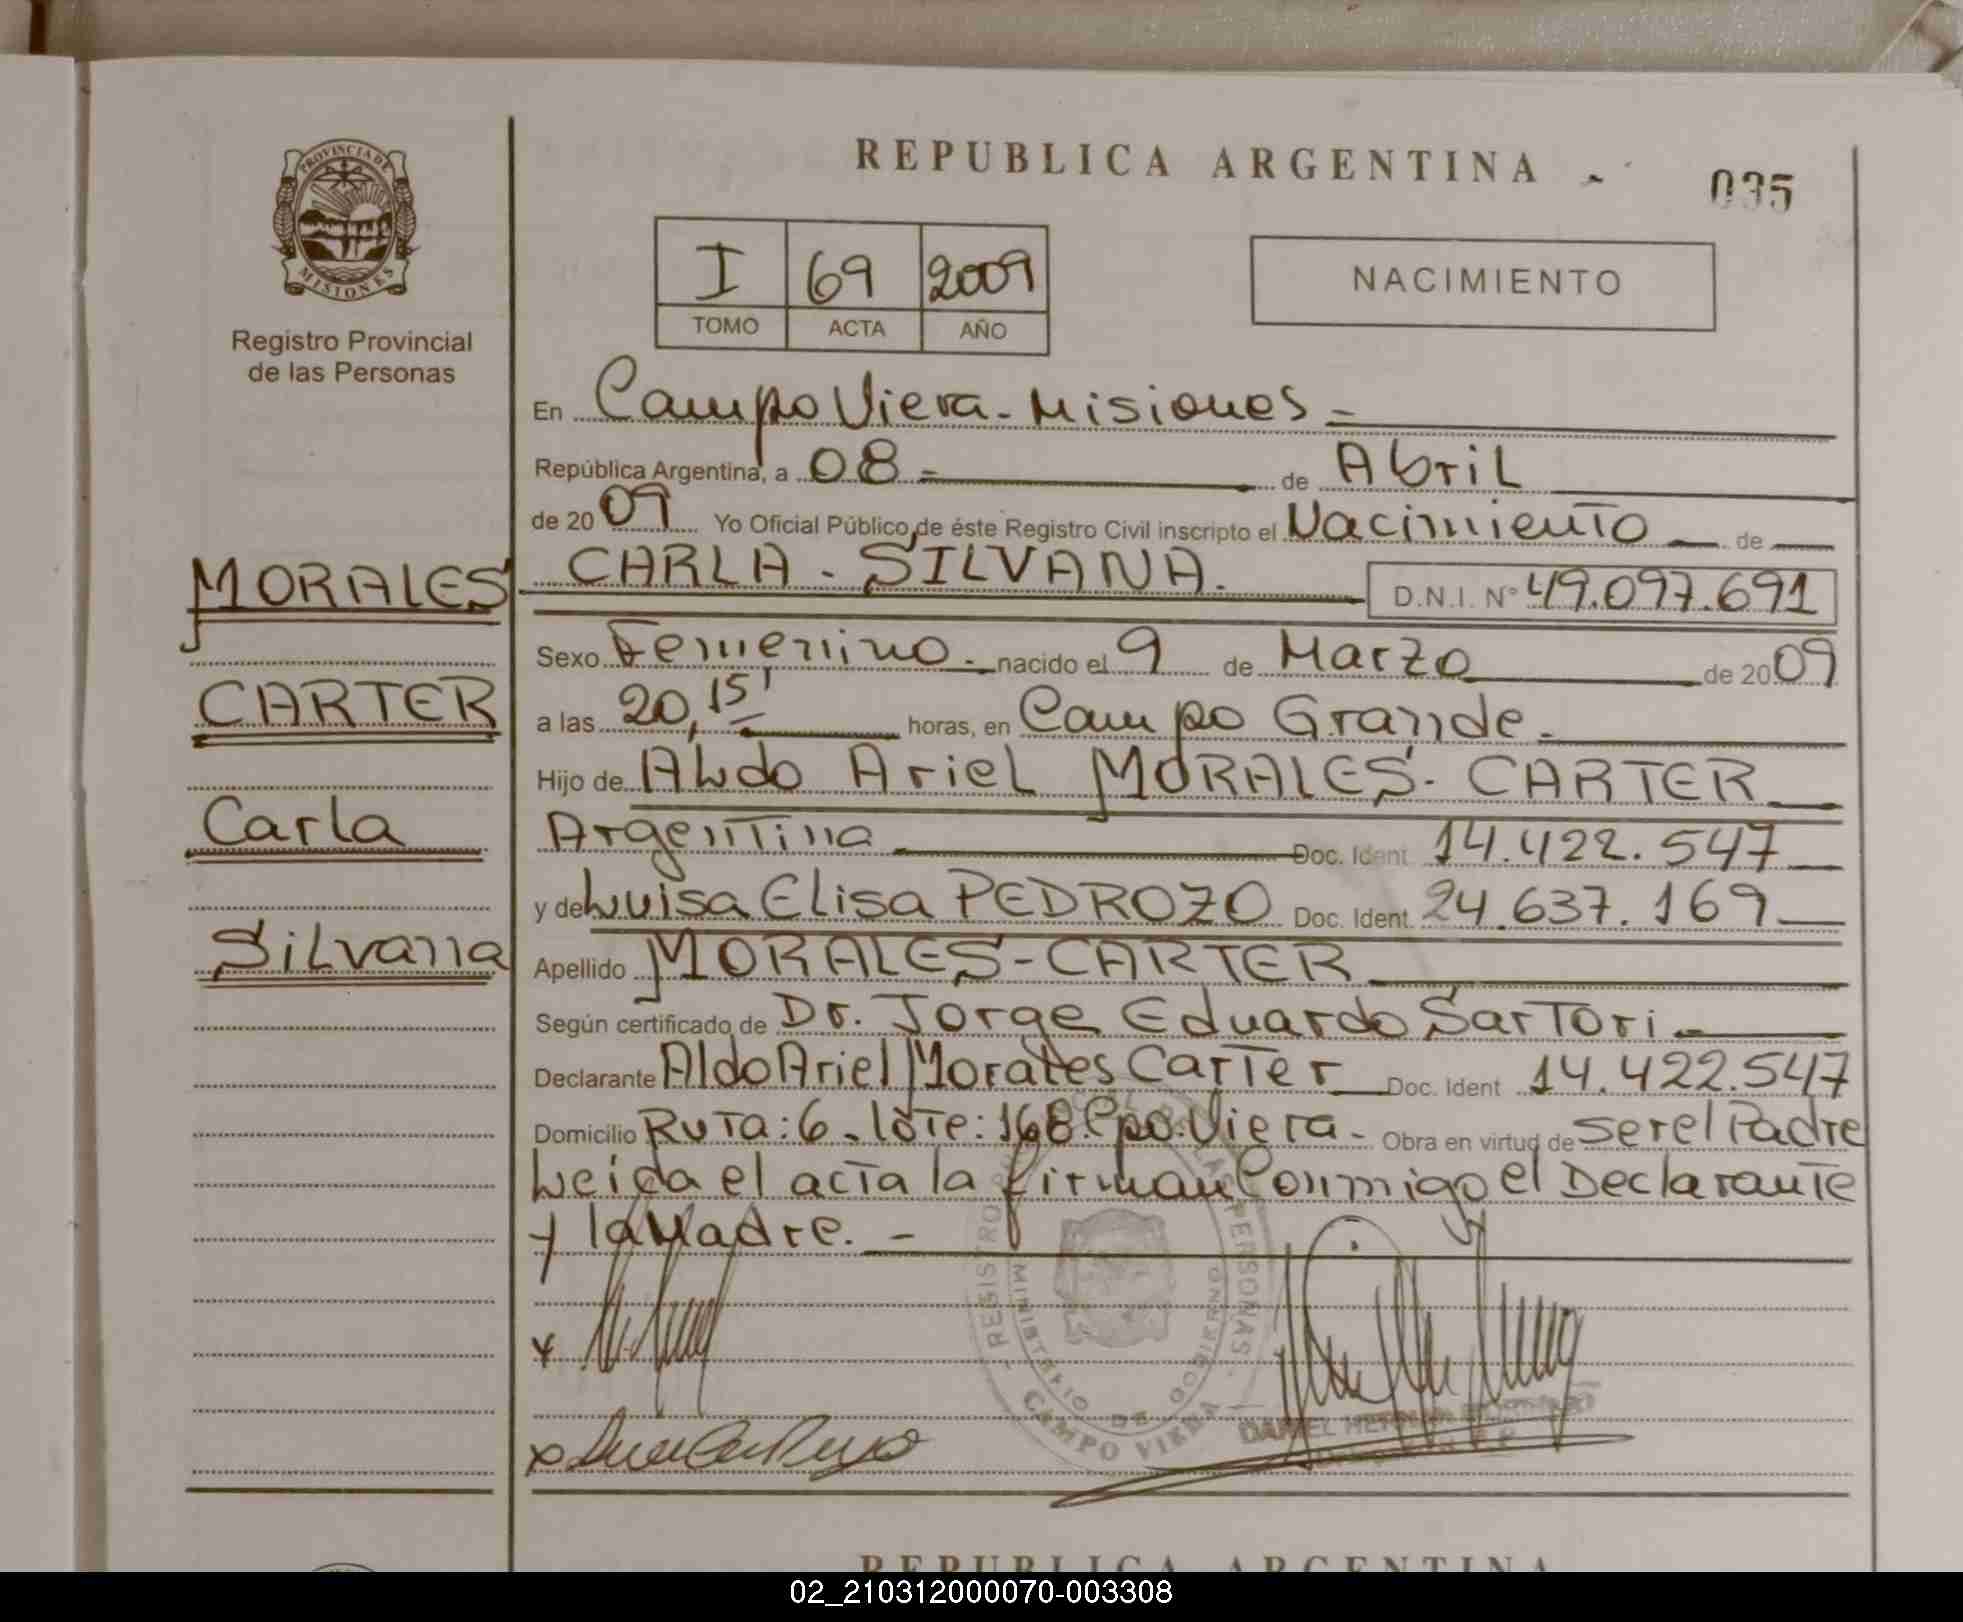 PROVINCIA DE
MISIONES
Registro Provincial
de las Personas
MORALES
CARTER
Carla
Silvana
REPUBLICA ARGENTINA
035
I 69 2009
TOMO ACTA AÑO
NACIMIENTO
En Campo Viera - Misiones -
República Argentina, a 08 - de Abril
de 2009 Yo Oficial Público de éste Registro Civil inscripto el Nacimiento de
CARLA - SILVANA. D.N.I. N° 49.097.691
Sexo Femenino - nacido el 9 de Marzo de 2009
a las 20,15' horas, en Campo Grande -
Hijo de Aldo Ariel MORALES - CARTER
Argentina Doc. Ident. 14.422.547
y de Luisa Elisa PEDROZO Doc. Ident. 24.637.169
Apellido MORALES - CARTER
Según certificado de Dr. Jorge Eduardo Sartori -
Declarante Aldo Ariel Morales Carter Doc. Ident 14.422.547
Domicilio Ruta: 6 - lote: 168. Cpo. Viera - Obra en virtud de ser el Padre
Leida el acta la firman Conmigo el Declarante
y la Madre. -
REGISTRO PERSONAS
MINISTERIO DE GOBIERNO
CAMPO VIERA
DANIEL
REPUBLICA ARGENTINA
02_210312000070-003308